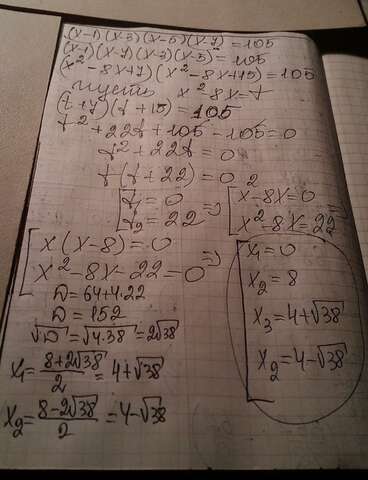 (x-1)(x-3)(x-5)(x-7)=105
(x-1)(x-7)(x-3)(x-5)=105
(x²-8x+7)(x²-8x+15)=105
пусть x²-8x=t
(t+7)(t+15)=105
t²+22t+105-105=0
t²+22t=0
t(t+22)=0
[t₁=0 => [x²-8x=0
t₂=22 x²-8x=22 =>
[x(x-8)=0
x²-8x-22=0 =>
D=64+4·22
D=152
√D=√4·38=2√38
x₁=(8+2√38)/2=4+√38
x₂=(8-2√38)/2=4-√38
[x₁=0
x₂=8
x₃=4+√38
x₂=4-√38